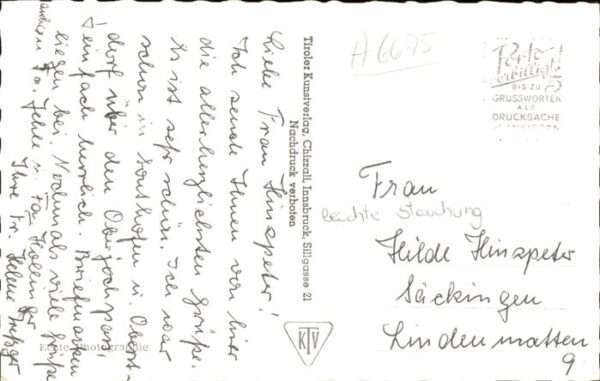 Liebe Frau Hinspeter!
Ich sende Ihnen von hier
die allerherzlichsten Grüße.
Es ist sehr schön. Ich war
schon in Sonthofen u. Oberst-
dorf über den Oberjochpass.
einfach herrlich. Briefmarken
liegen bei. Nochmals viele Grüße
an Fa. Jehle u.
Ihre Fr. Helene
Echte Photographie
Tiroler Kunstverlag, Chizzali, Innsbruck, Sillgasse 21
Nachdruck verboten
KTV
A6695
Porto
ermäßigt!
BIS ZU 5
GRUSSWORTEN
ALS
DRUCKSACHE
Frau
beachte Stauchung
Hilde Hinspeter
Säckingen
Lindenmatten
9